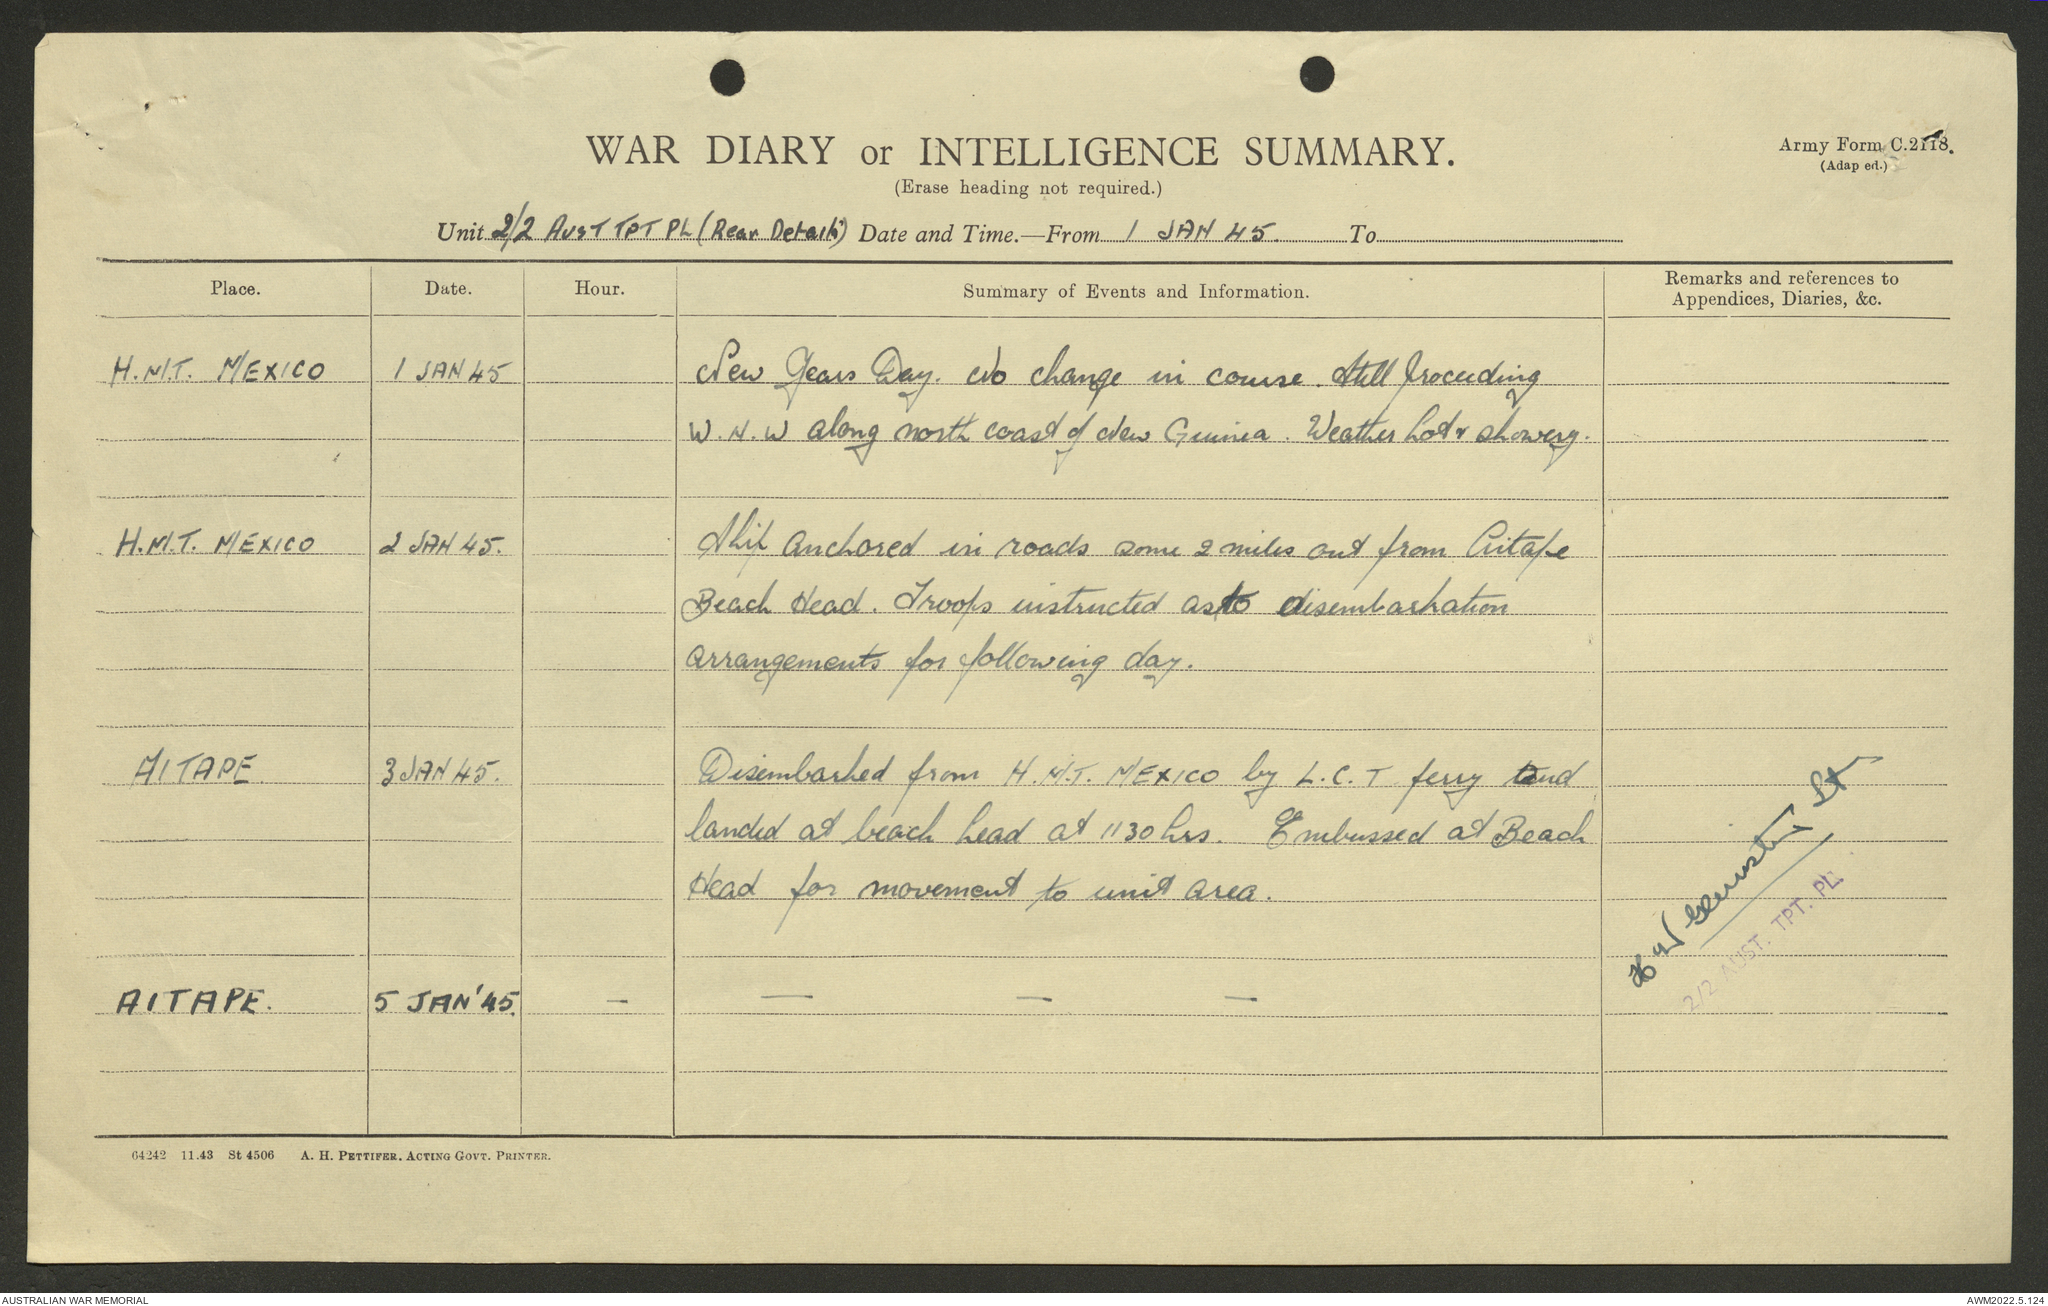 WAR DIARY or INTELLIGENCE SUMMARY.
Army Form C.2118.
(Adap ed.)
(Erase heading not required.)
Unit 2/2 AUST TPT PL (Rear Details) Date and Time.—From 1 JAN 45. To
Place.
Date.
Hour.
Summary of Events and Information.
Remarks and references to
Appendices, Diaries, &c.
H.M.T. MEXICO 1 JAN 45 New Years Day. No change in course. Still proceeding
W.N.W along north coast of New Guinea. Weather hot & showery.
H.M.T. MEXICO 2 JAN 45. Ship anchored in roads some 2 miles out from Aitape
Beach Head. Troops instructed as to disembarkation
arrangements for following day.
AITAPE 3 JAN 45. Disembarked from H.M.T. MEXICO by L.C.T ferry and
landed at beach head at 1130 hrs. Embussed at Beach
Head for movement to unit area.
Lt
2/2 AUST. TPT. PL.
AITAPE. 5 JAN '45. — — — —
64242 11.43 St 4506 A. H. PETTIFER, ACTING GOVT. PRINTER.
AUSTRALIAN WAR MEMORIAL
AWM2022.5.124